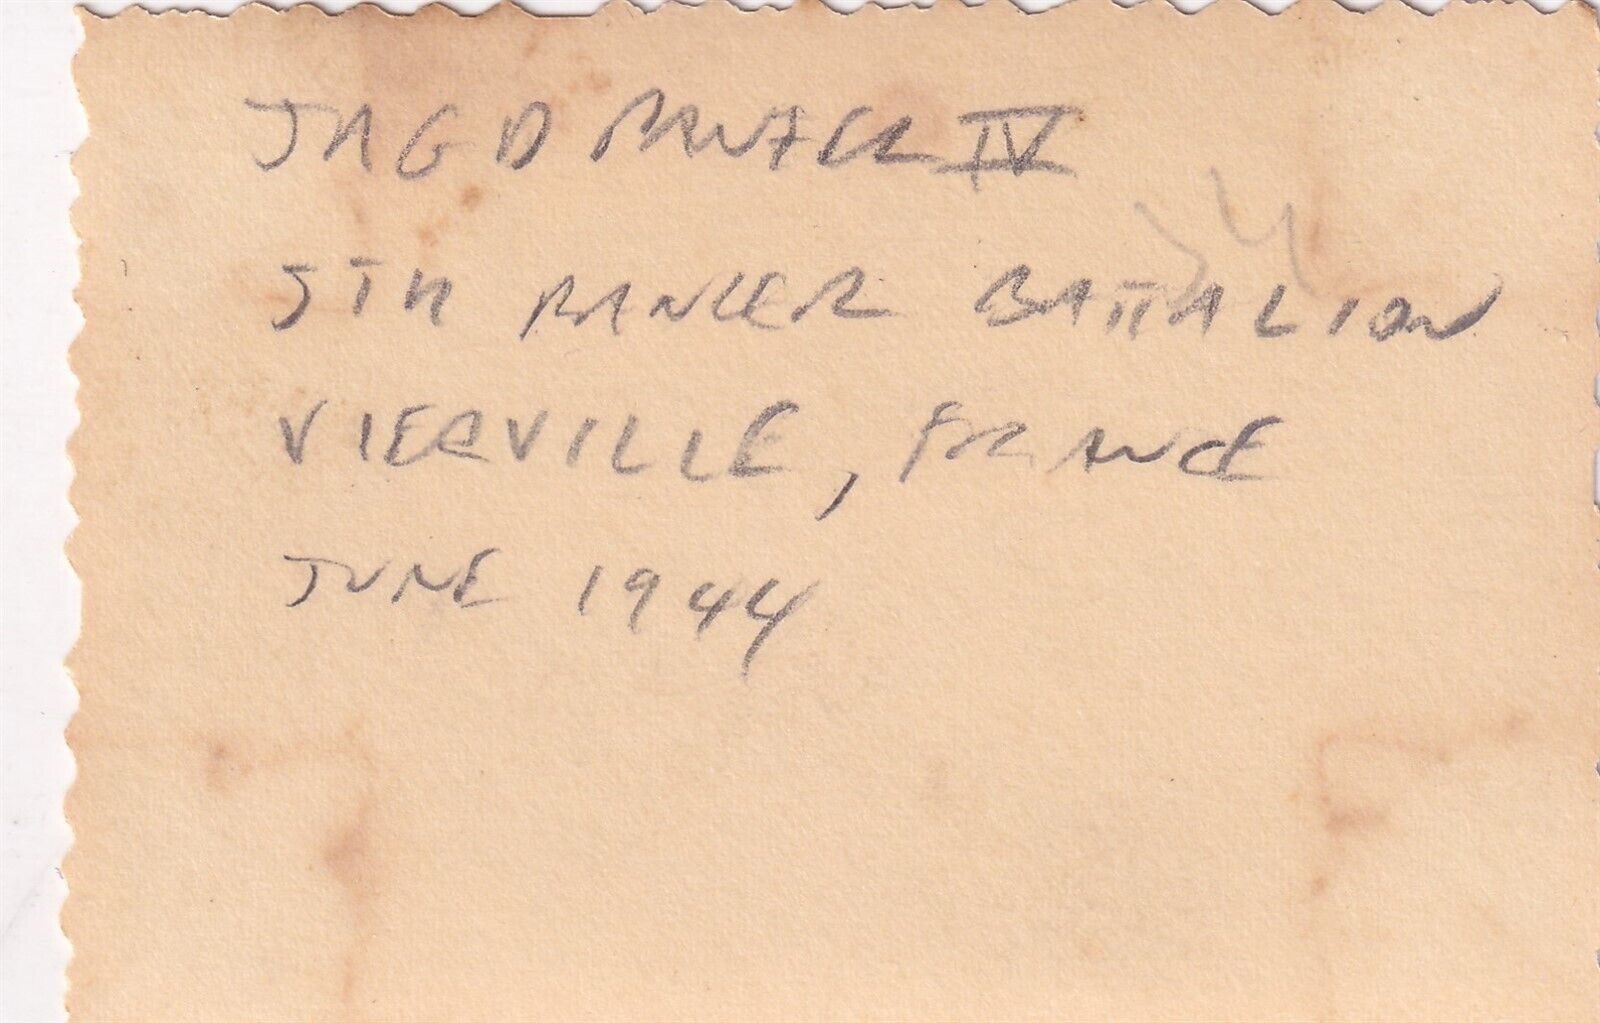 JAGD PANZER IV
5TH RANGER BATTALION
VIERVILLE, FRANCE
JUNE 1944